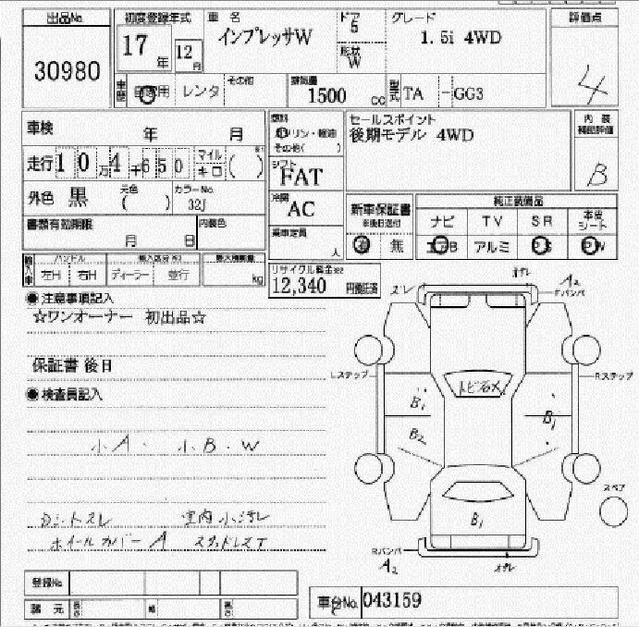 出品No. 初度登録年式 車名 ドア グレード 評価点
30980 17年 12月 インプレッサW 5 形状 W 1.5i 4WD 4
車歴 自家用 レンタ その他 排気量 1500 cc 型式 TA -GG3
車検 年 月 燃料 ガソリン・軽油 その他( ) セールスポイント 内装 補助評価
後期モデル 4WD B
走行 10万4千650 マイル キロ ( ) シフト FAT
外色 黒 元色 ( ) カラーNo. 32J 冷房 AC 新車保証書 ※後日送付 有 無 純正装備品
ナビ TV SR 本皮シート
書類有効期限 月 日 内装色 乗車定員 人 エアB アルミ PS PW
輸入車 ハンドル 左H 右H 輸入区分 ディーラー 並行 最大積載量 kg リサイクル料金 12,340 円預託済
◉注意事項記入
☆ワンオーナー 初出品☆
保証書 後日
◉検査員記入
小A・小B・W
シートスレ 室内小汚レ
ホイールカバーA スタッドレスT
スレ オレ A2
Fバンパ
Lステップ Rステップ
トビ石メ
B1 B1
B2
スペア
B1
Rバンパ オレ
A2
登録No.
諸元 長 幅 高
車台No. 043159